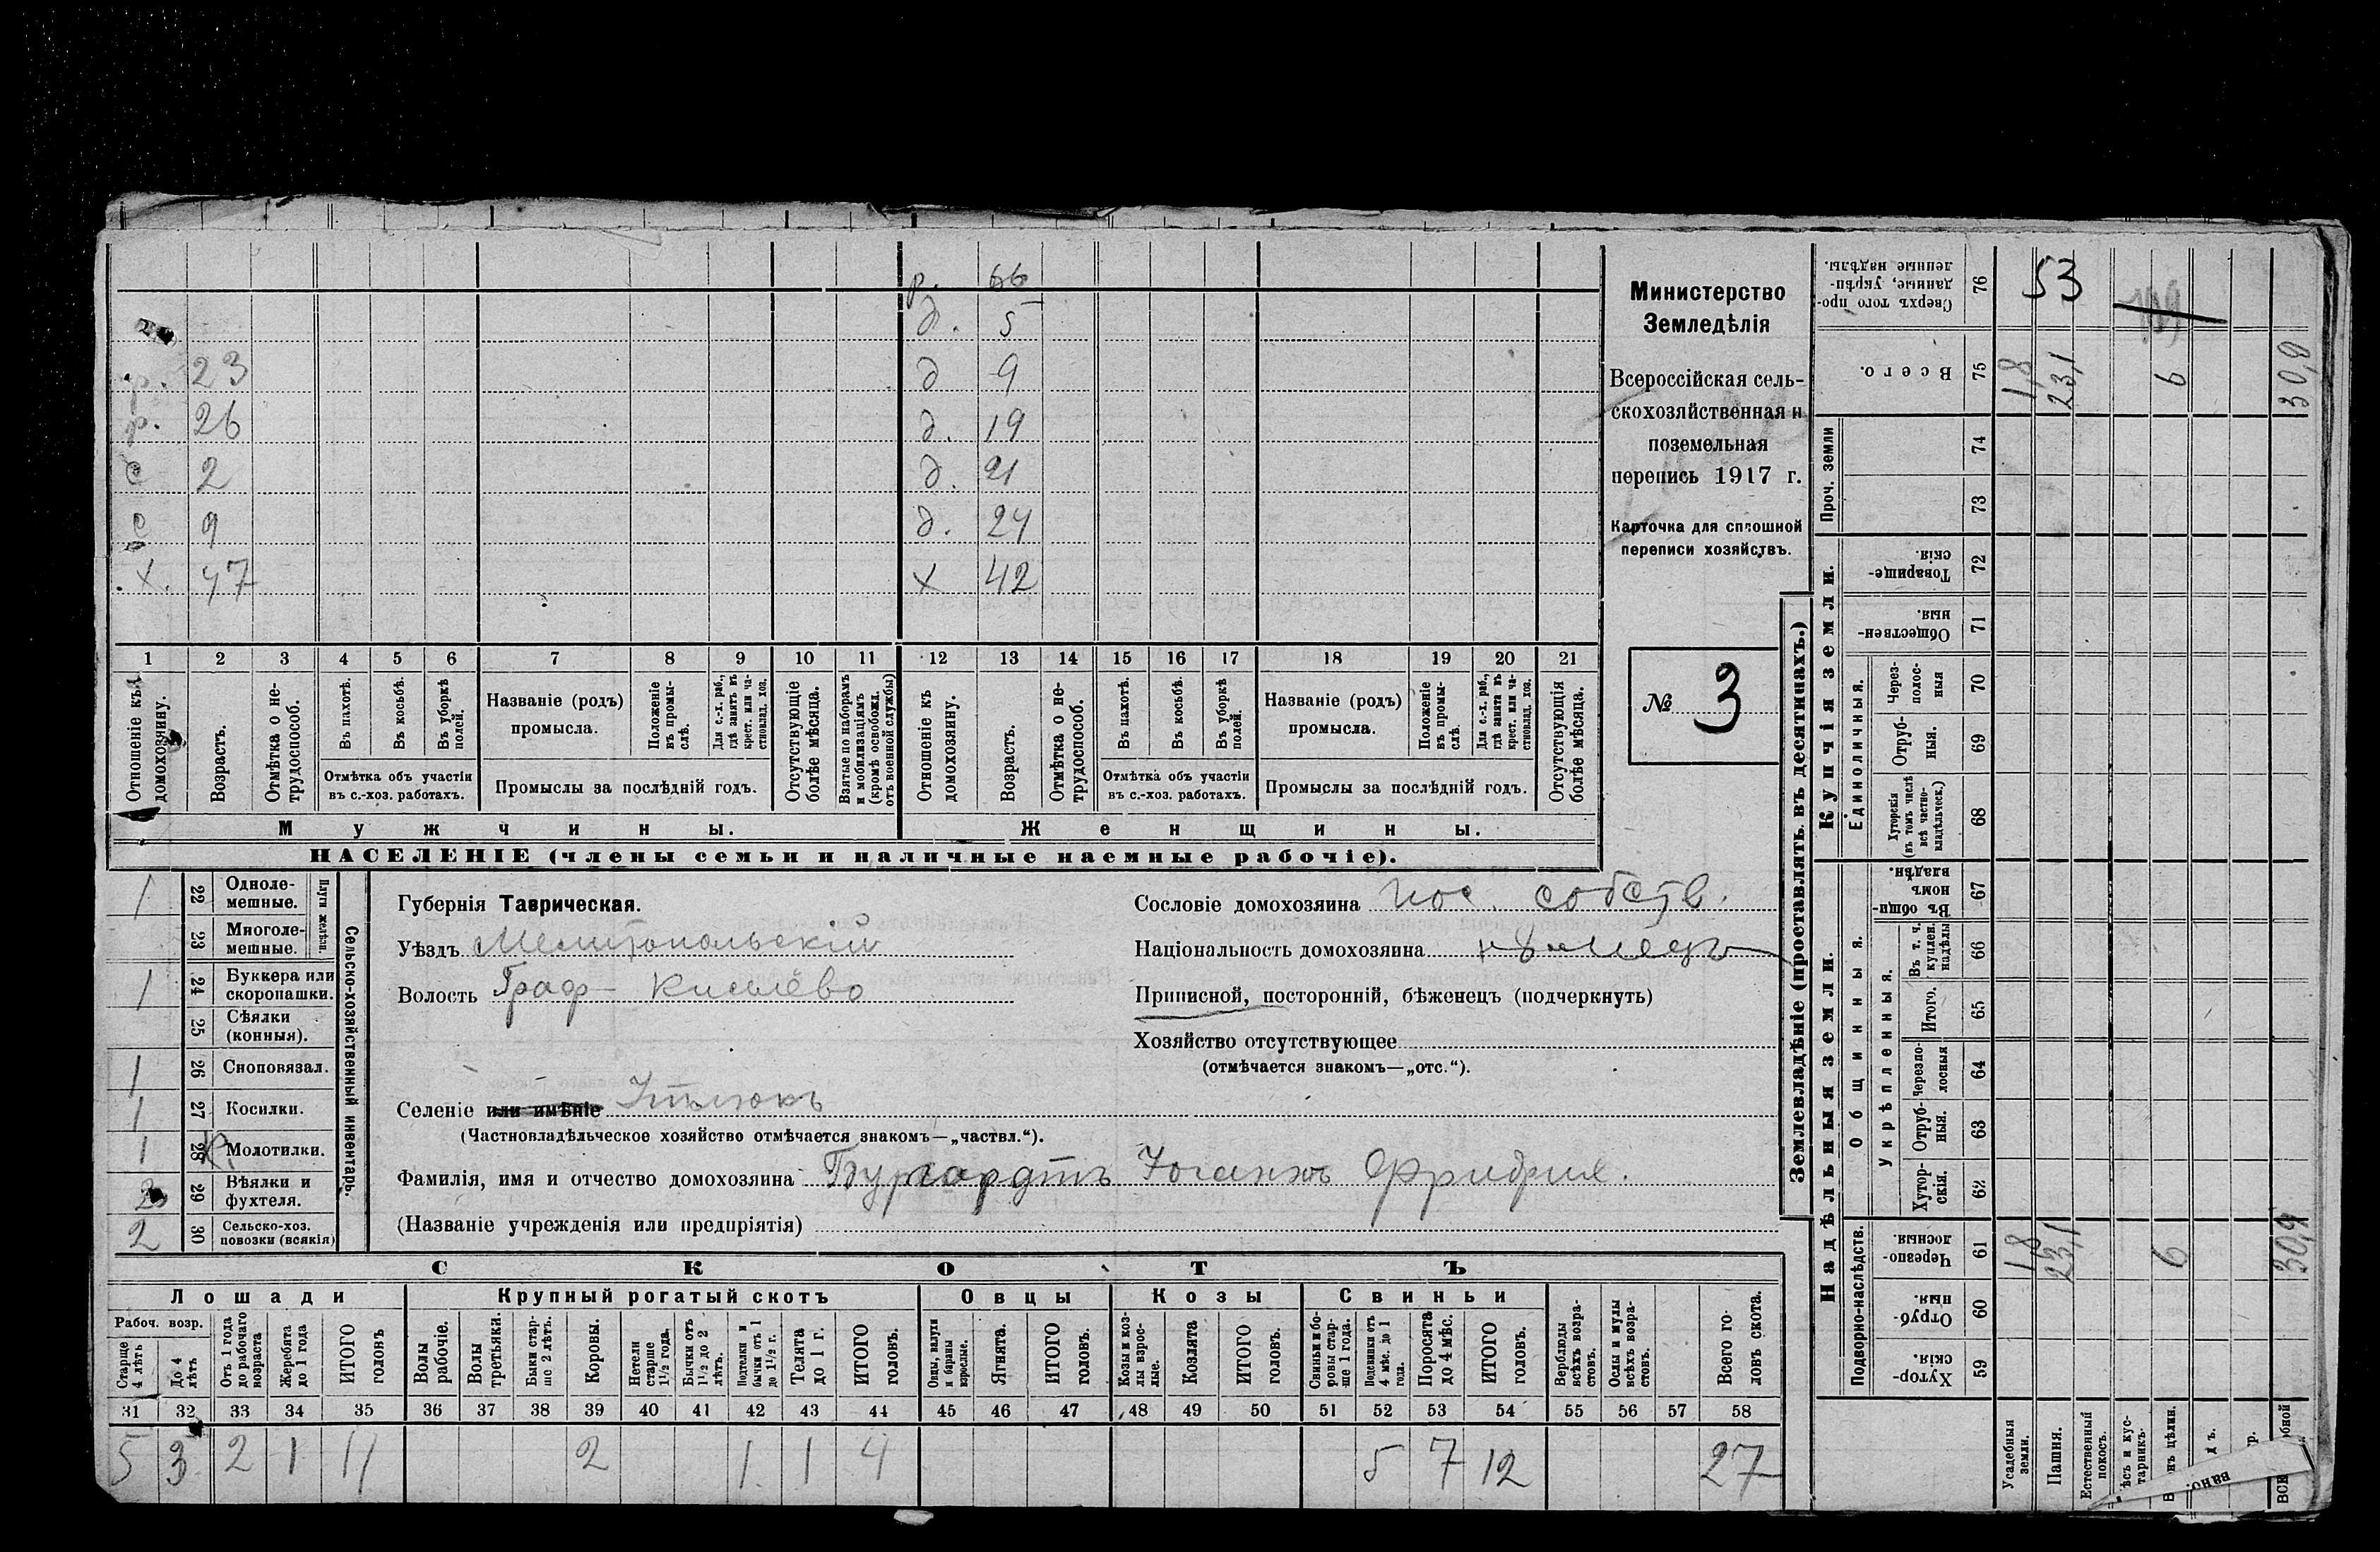 р. 66
д. 5
р. 23 д 9
р. 26 д. 19
с 2 д. 21
с 9 д. 24
х. 47 х 42
1 2 3 4 5 6 7 8 9 10 11 12 13 14 15 16 17 18 19 20 21
Отношеніе къ домохозяину.
Возрастъ.
Отмѣтка о нетрудоспособ.
Въ пахотѣ.
Въ косьбѣ.
Въ уборкѣ полей.
Отмѣтка объ участіи
въ с.-хоз. работахъ.
Названіе (родъ)
промысла.
Положеніе въ промыслѣ.
Для с.-х. раб., гдѣ занятъ въ крест. или частновлад. хоз.
Промыслы за послѣдній годъ.
Отсутствующіе болѣе мѣсяца.
Взятые по наборамъ и мобилизаціямъ (кромѣ освобожд. отъ военной службы)
Отношеніе къ домохозяину.
Возрастъ.
Отмѣтка о нетрудоспособ.
Въ пахотѣ.
Въ косьбѣ.
Въ уборкѣ полей.
Отмѣтка объ участіи
въ с.-хоз. работахъ.
Названіе (родъ)
промысла.
Положеніе въ промыслѣ.
Для с.-х. раб., гдѣ занята въ крест. или частновлад. хоз.
Промыслы за послѣдній годъ.
Отсутствующія болѣе мѣсяца.
Мужчины. Женщины.
НАСЕЛЕНІЕ (члены семьи и наличные наемные рабочіе).
Министерство
Земледѣлія
Всероссійская сель-
скохозяйственная и
поземельная
перепись 1917 г.
Карточка для сплошной
переписи хозяйствъ.
№ 3
1 22 Однолемешные.
23 Многолемешные.
Плуги желѣзн.
1 24 Буккера или скоропашки.
25 Сѣялки (конныя).
1 26 Сноповязал.
1 27 Косилки.
1 28 Молотилки.
29 Вѣялки и фухтеля.
2 30 Сельско-хоз. повозки (всякія)
Сельско-хозяйственный инвентарь.
Губернія Таврическая.
Уѣздъ Мелитопольскій
Волость Граф- Киселёво
Селеніе или имѣніе
(Частновладѣльческое хозяйство отмѣчается знакомъ—„частвл.“).
Фамилія, имя и отчество домохозяина Бургардтъ Іоганъ Фридрих.
(Названіе учрежденія или предпріятія)
Сословіе домохозяина пос. собств.
Національность домохозяина нѣмецъ
Приписной, посторонній, бѣженецъ (подчеркнуть)
Хозяйство отсутствующее
(отмѣчается знакомъ—„отс.“).
СКОТЪ
Лошади Крупный рогатый скотъ Овцы Козы Свиньи
Рабоч. возр.
Старше 4 лѣтъ
До 4 лѣтъ
Отъ 1 года до рабочаго возраста
Жеребята до 1 года
ИТОГО головъ
Волы рабочіе.
Волы третьяки.
Быки старше 2 лѣтъ.
Коровы.
Нетели старше 1½ года.
Бычки отъ 1½ до 2 лѣтъ.
Подтелки и бычки отъ 1 до 1½ г.
Телята до 1 г.
ИТОГО головъ.
Овцы, валухи и бараны взрослые.
Ягнята.
ИТОГО головъ.
Козы и козлы взрослые.
Козлята
ИТОГО головъ.
Свиньи и боровы старше 1 года.
Подсвинки отъ 4 мѣс. до 1 года.
Поросята до 4 мѣс.
ИТОГО головъ.
Верблюды всѣхъ возрастовъ.
Ослы и мулы всѣхъ возрастовъ.
Всего головъ скота.
31 32 33 34 35 36 37 38 39 40 41 42 43 44 45 46 47 48 49 50 51 52 53 54 55 56 57 58
5 3 2 1 11 2 1 1 4 5 7 12 27
Землевладѣніе (проставлять въ десятинахъ.)
Надѣльныя земли. Купчія земли.
Подворно-наслѣдств.
Общинныя.
Укрѣпленныя.
Единоличныя.
Проч. земли
Сверхъ того проданные, укрѣпленные надѣлы. 76 53
Всего. 75 1,8 23,1 6 30,9
74
73
Товарищескія. 72
Общественныя. 71
Черезполосныя 70
Отрубныя. 69
Хуторскія (въ томъ числѣ всѣ частновладѣльческ.) 68
Въ общинномъ владѣн. 67
Въ т. ч. куплен. надѣлы 66
Итого. 65
Черезполосныя 64
Отрубныя. 63
Хуторскія. 62
Черезполосныя. 61 1,8 23,1 6 30,9
Отрубныя. 60
Хуторскія. 59
Усадебныя земли.
Пашня.
Естественный покосъ.